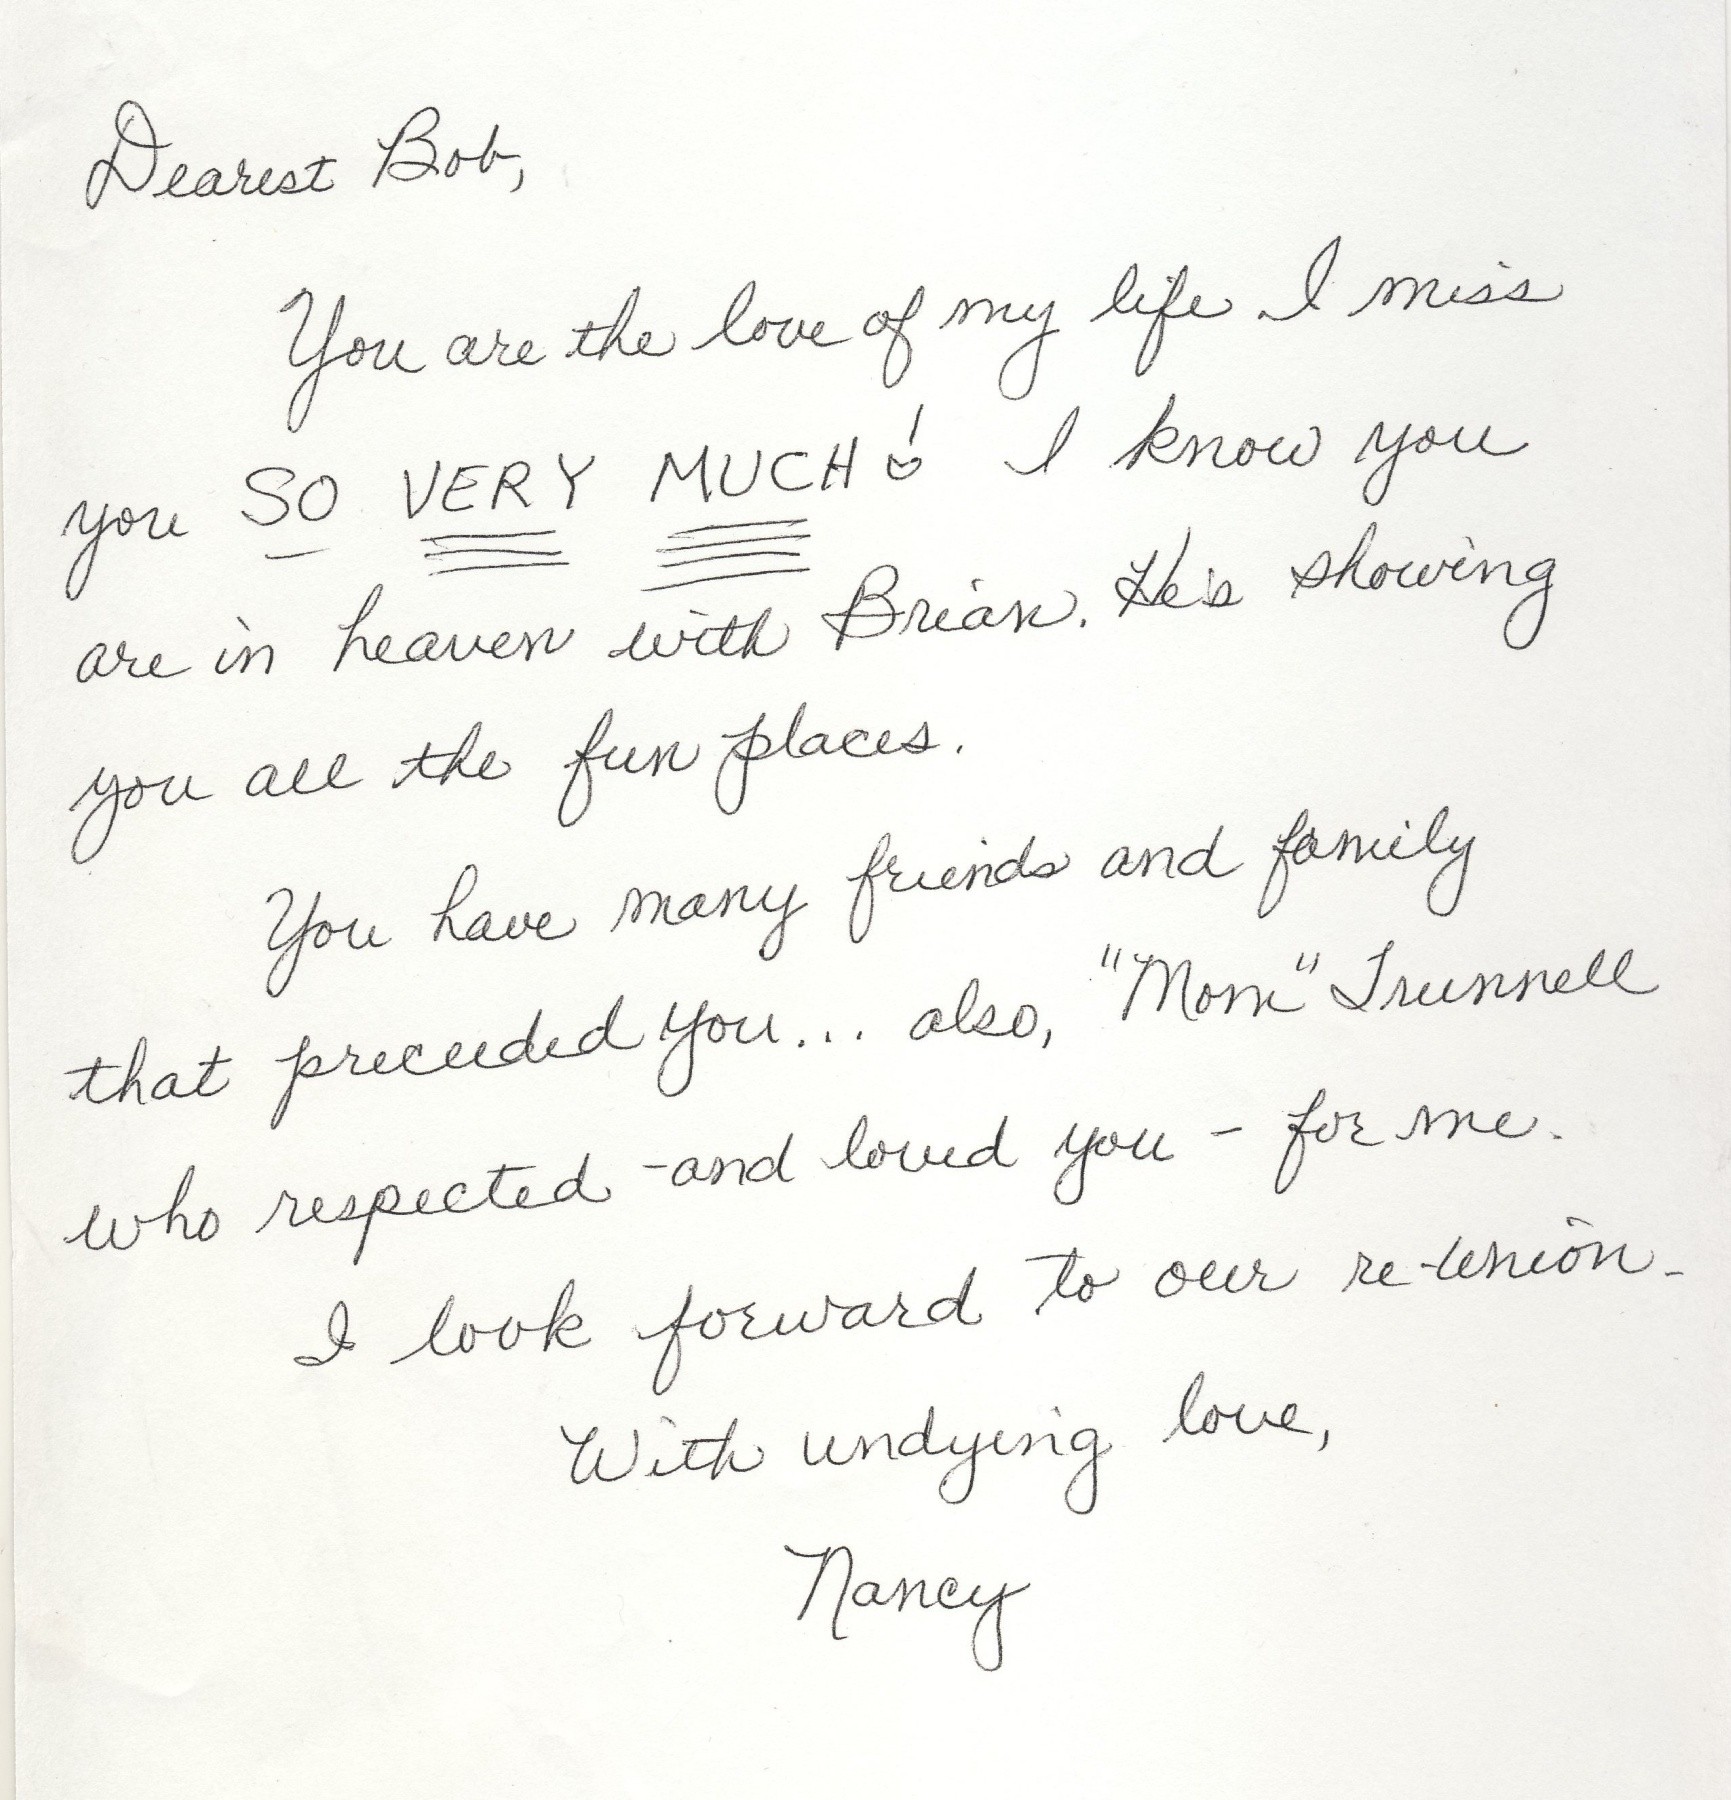 Dearest Bob,
You are the love of my life. I miss
you SO VERY MUCH! I know you
are in heaven with Brian. He's showing
you all the fun places.
You have many friends and family
that preceeded you... also, "Mom" Trunnell
who respected - and loved you - for me.
I look forward to our re-union.
With undying love,
Nancy